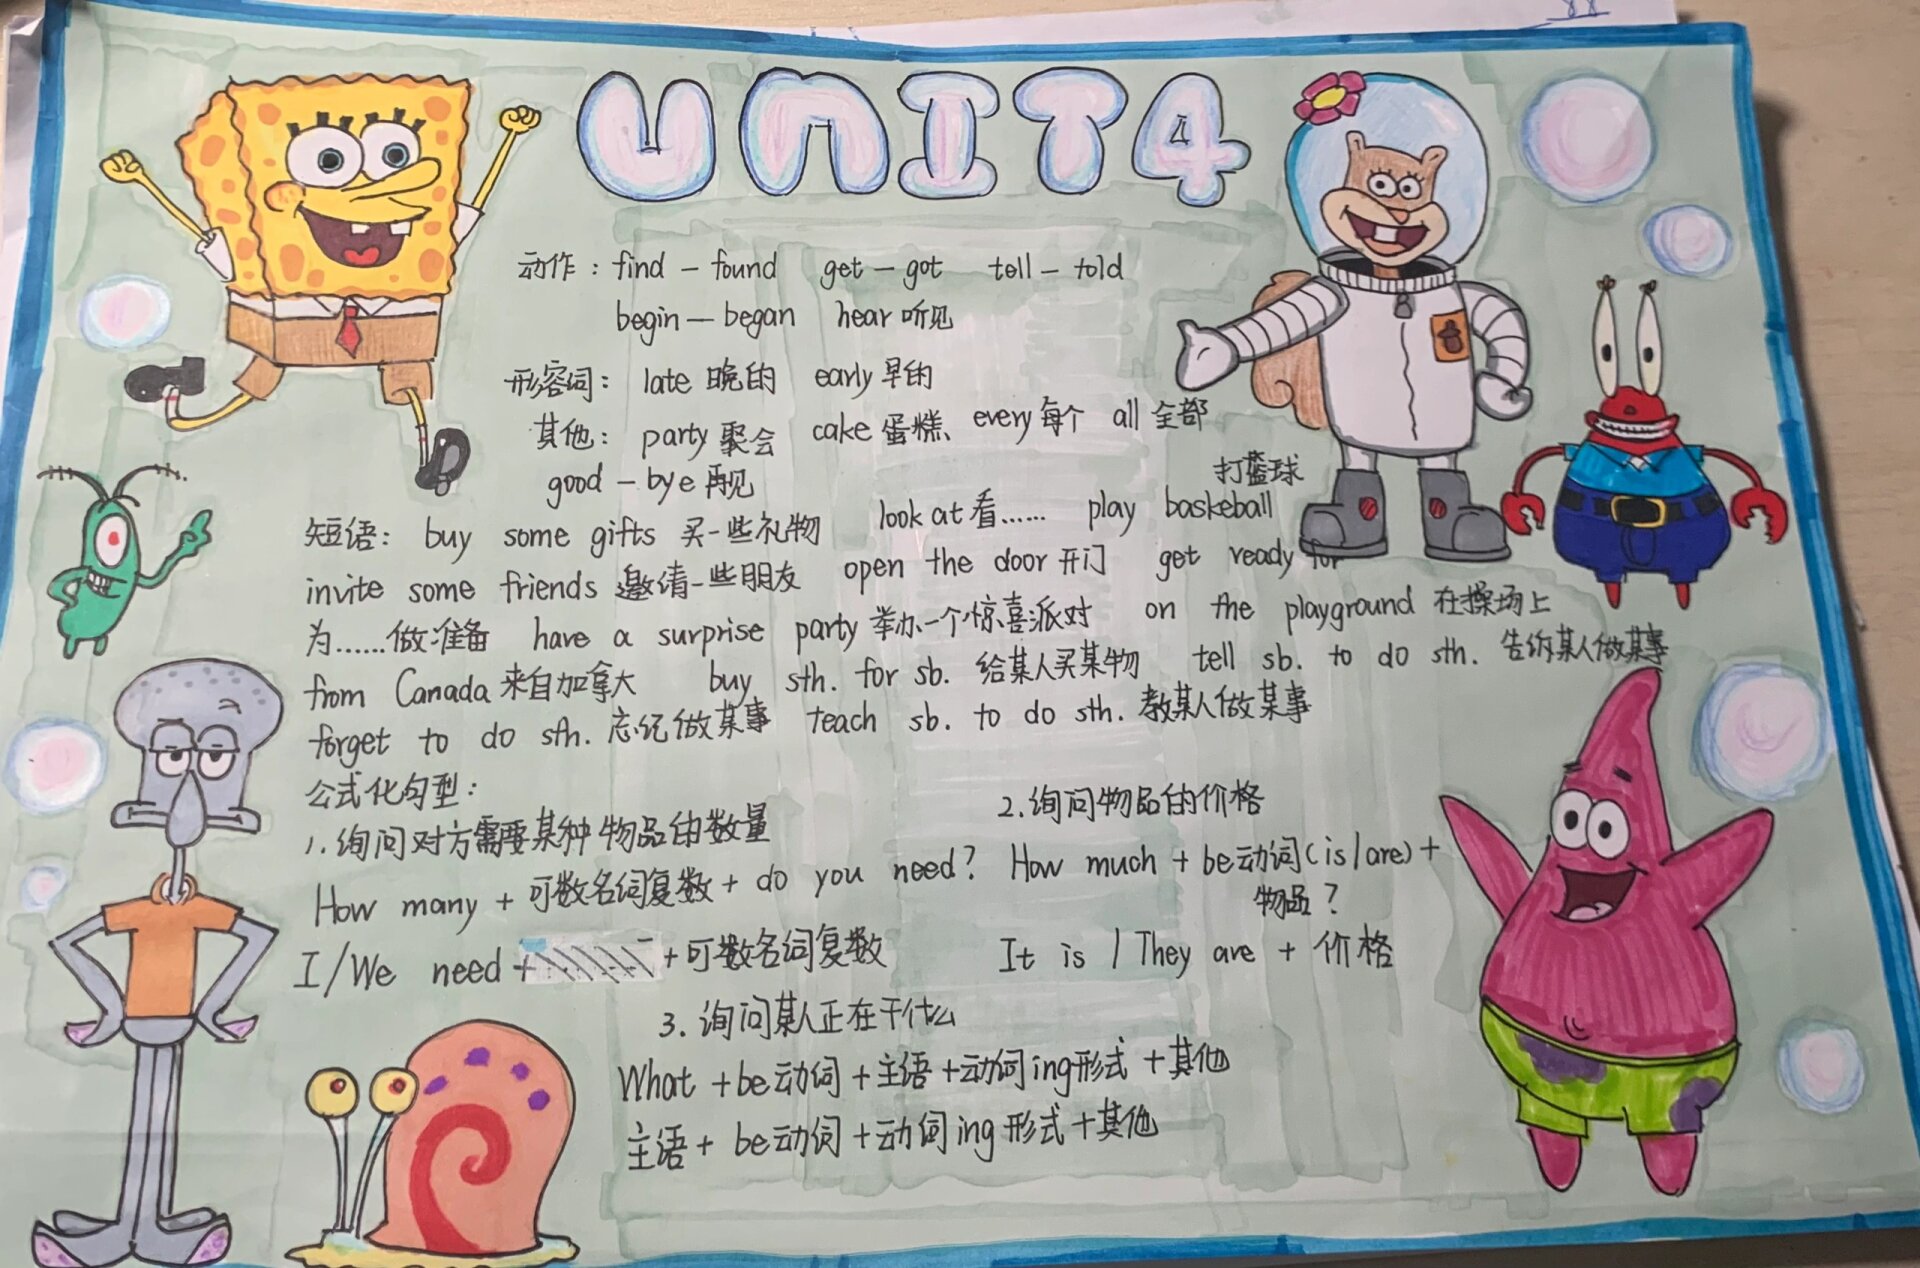 UNIT4
动作：find - found get - got tell - told
begin - began hear 听见
形容词： late 晚的 early 早的
其他： party 聚会 cake 蛋糕、every 每个 all 全部
good - bye 再见
打蓝球
短语： buy some gifts 买一些礼物 look at 看…… play baskeball
invite some friends 邀请一些朋友 open the door 开门 get ready for
为……做准备 have a surprise party 举办一个惊喜派对 on the playground 在操场上
from Canada 来自加拿大 buy sth. for sb. 给某人买某物 tell sb. to do sth. 告诉某人做某事
forget to do sth. 忘记做某事 teach sb. to do sth. 教某人做某事
公式化句型：
1. 询问对方需要某种物品的数量
How many + 可数名词复数 + do you need?
I/We need + + 可数名词复数
2. 询问物品的价格
How much + be动词(is/are) +
物品？
It is / They are + 价格
3. 询问某人正在干什么
What + be动词 + 主语 + 动词ing形式 + 其他
主语 + be动词 + 动词ing形式 + 其他